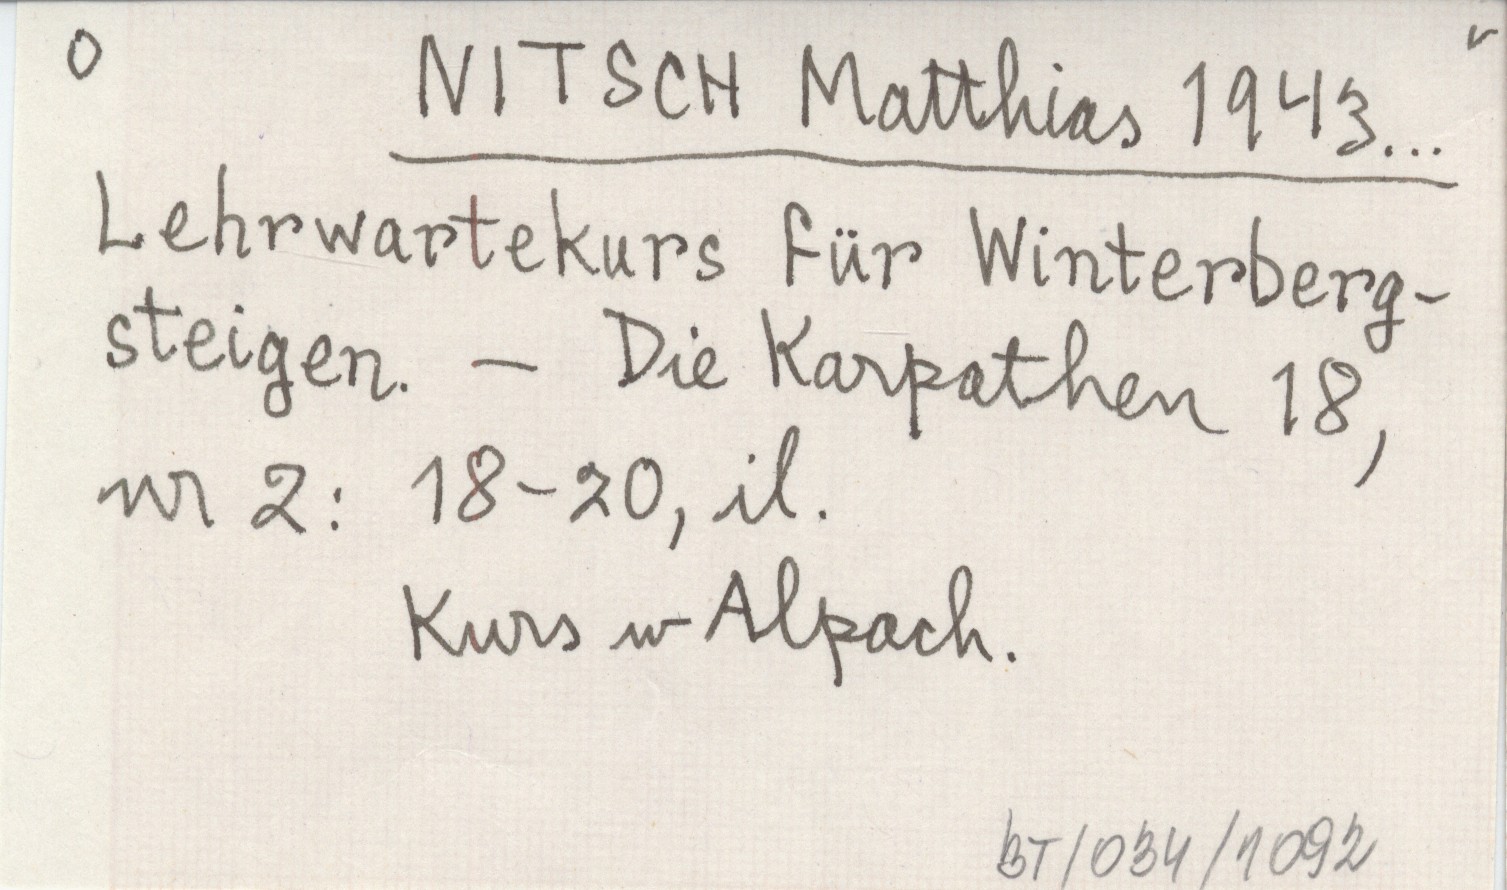 O NITSCH Matthias 1943...
Lehrwartekurs für Winterberg-
steigen. — Die Karpathen 18,
nr 2: 18-20, il.
Kurs w Alpach.
BT/034/1092